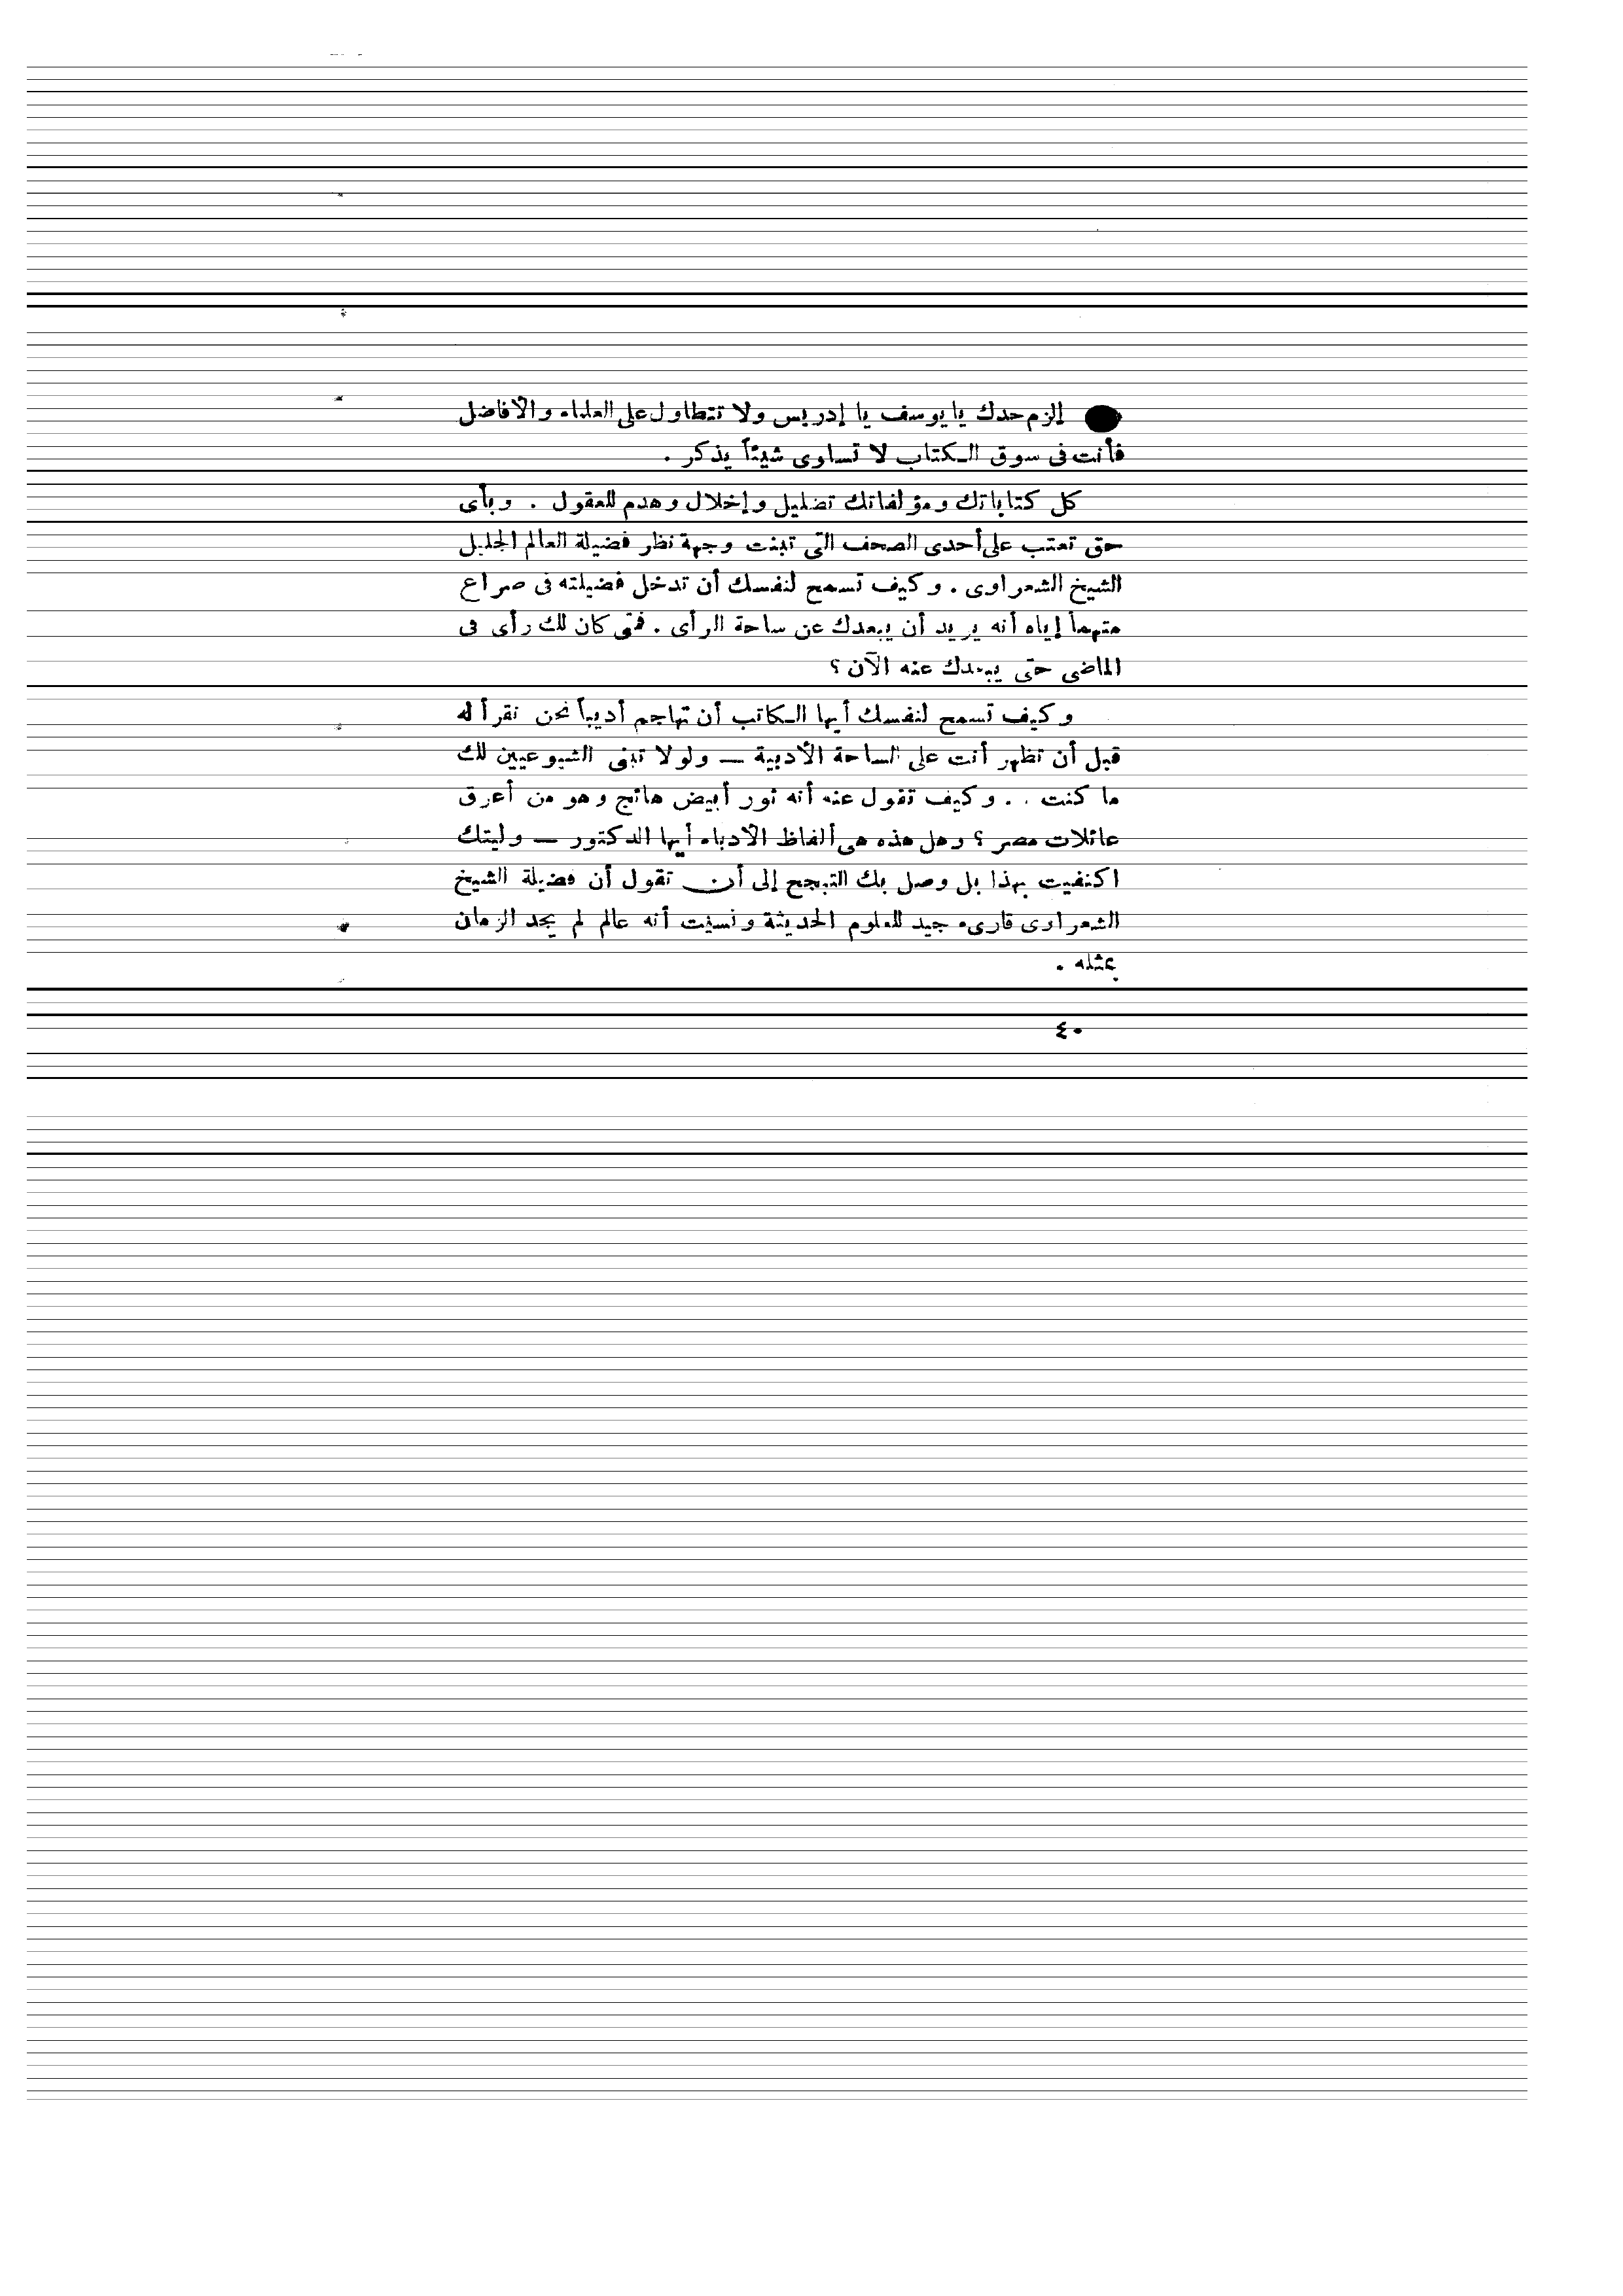 إلزم حدك يا يوسف يا إدريس ولا تتطاول على العلماء والأفاضل
فأنت فى سوق الكتاب لا تساوى شيئاً يذكر .
كل كتاباتك ومؤلفاتك تضليل وإخلال وهدم للعقول . وبأى
حق تعتب على أحدى الصحف التى تبنت وجهة نظر فضيلة العالم الجليل
الشيخ الشعراوى . وكيف تسمح لنفسك أن تدخل فضيلته فى صراع
متهماً إياه أنه يريد أن يبعدك عن ساحة الرأى . فمتى كان لك رأى فى
الماضى حتى يبعدك عنه الآن ؟
وكيف تسمح لنفسك أيها الكاتب أن تهاجم أديباً نحن نقرأ له
قبل أن تظهر أنت على الساحة الأدبية — ولولا تبنى الشيوعيين لك
ما كنت . . وكيف تقول عنه أنه ثور أبيض هائج وهو من أعرق
عائلات مصر ؟ وهل هذه هى ألفاظ الأدباء أيها الدكتور — وليتك
اكتفيت بهذا بل وصل بك التبجح إلى أن تقول أن فضيلة الشيخ
الشعراوى قارىء جيد للعلوم الحديثة ونسيت أنه عالم لم يجد الزمان
بمثله .
٤٠